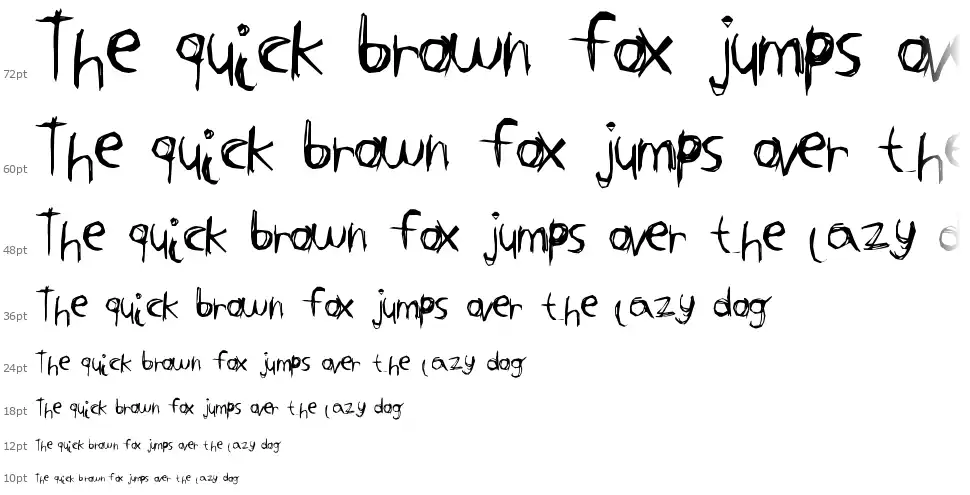 72pt The quick brown fox jumps ove
60pt The quick brown fox jumps over the
48pt The quick brown fox jumps over the lazy d
36pt The quick brown fox jumps over the lazy dog
24pt The quick brown fox jumps over the lazy dog
18pt The quick brown fox jumps over the lazy dog
12pt The quick brown fox jumps over the lazy dog
10pt The quick brown fox jumps over the lazy dog